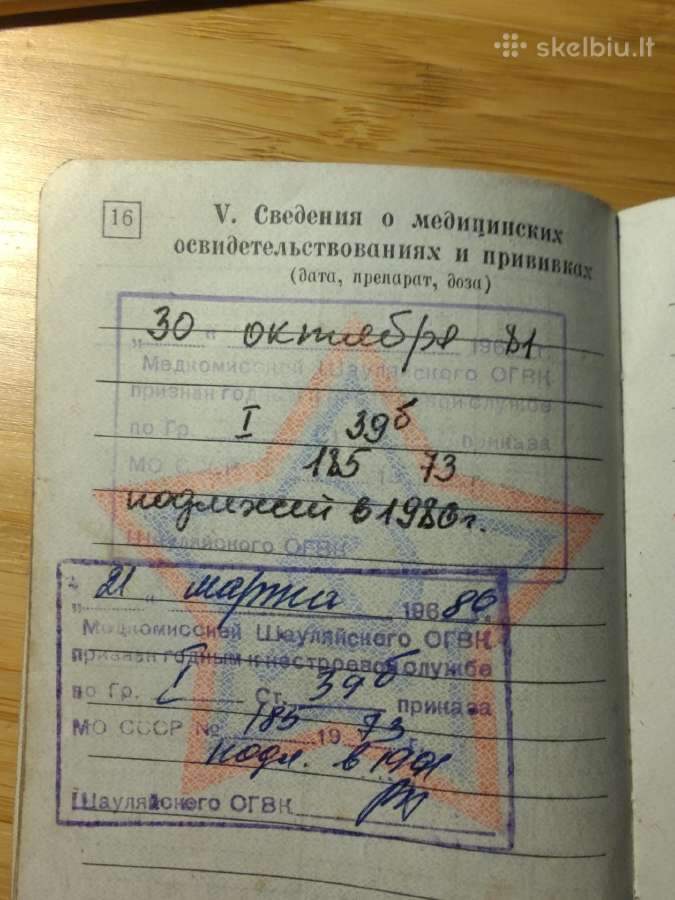 skelbiu.lt
16
V. Сведения о медицинских
освидетельствованиях и прививках
(дата, препарат, доза)
„30 “ октября 196 81 г.
Медкомиссией Шауляйского ОГВК
признан годным службе
по Гр. I 39б приказа
МО С 185 73
в 1986 г.
Шауляйского ОГВК
„21 “ марта 196 86
Медкомиссией Шауляйского ОГВК
признан годным к нестроевой службе
по Гр. I Ст. 39б приказа
МО СССР № 185 19 73
в 19
Шауляйского ОГВК